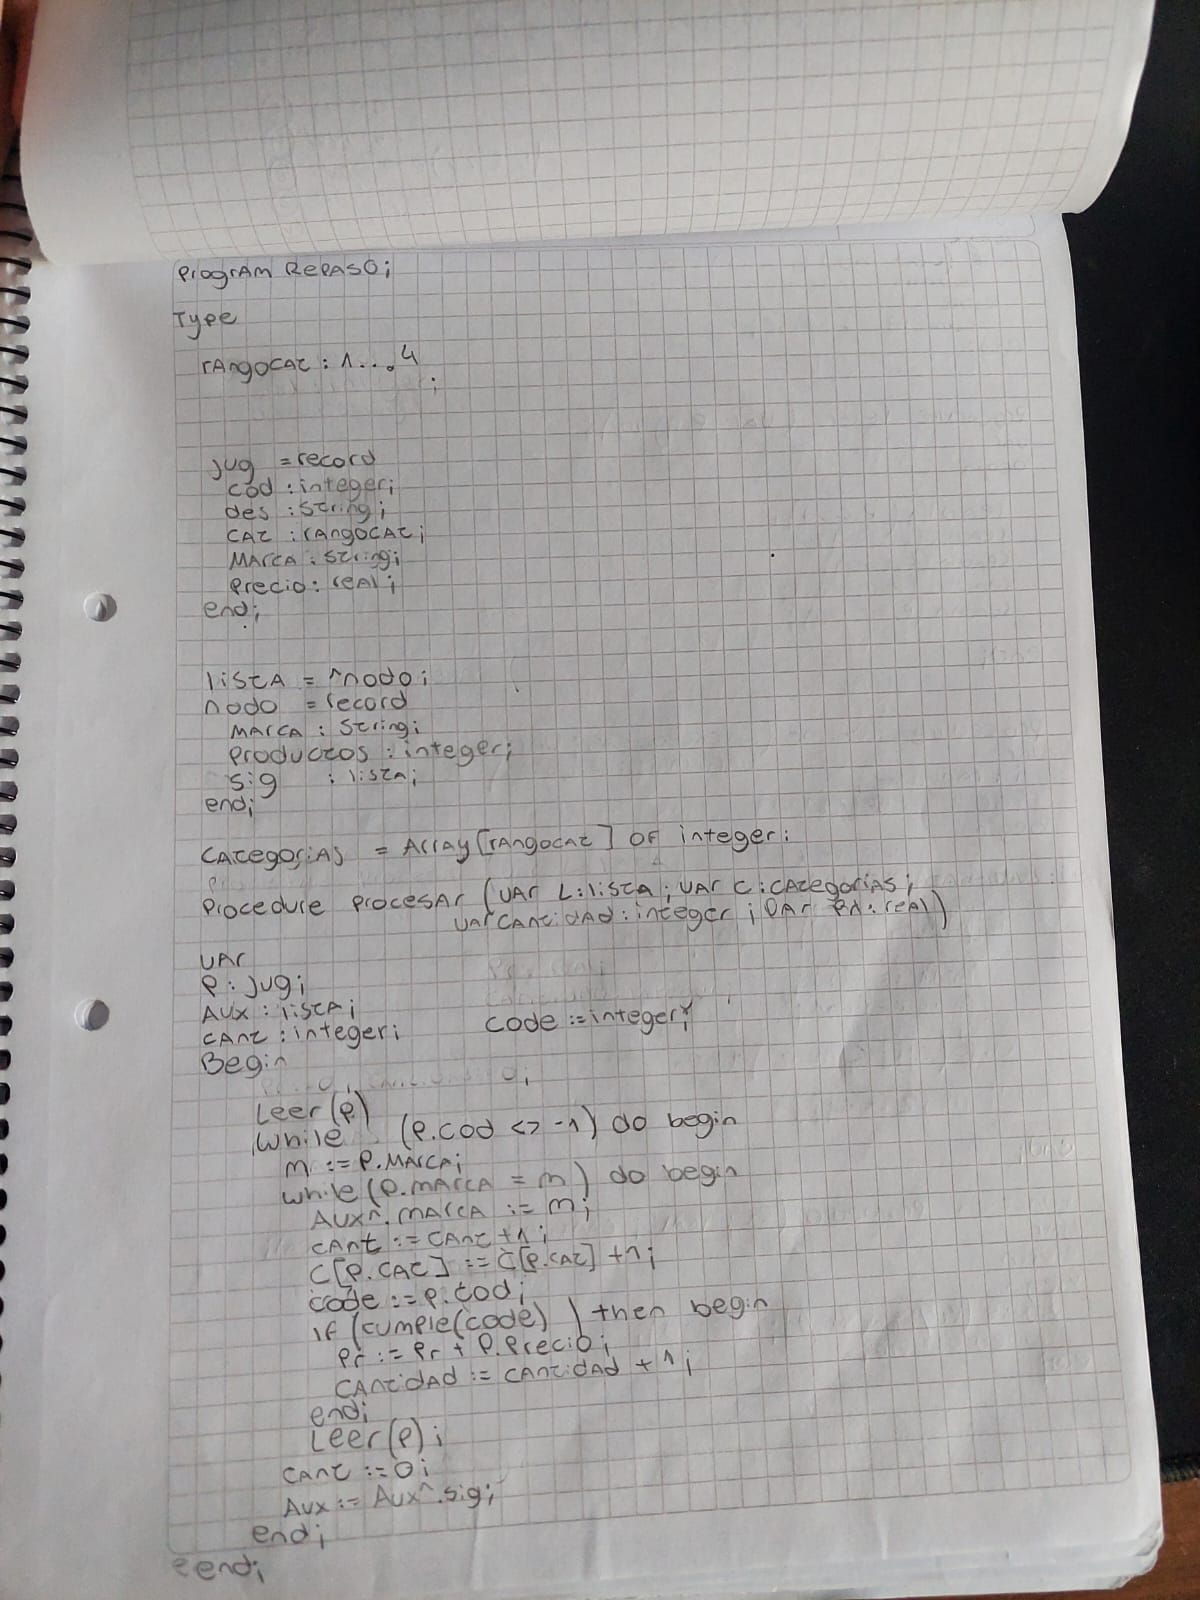 Program Repaso;
Type
rangocat : 1...4;
jug = record
cod : integer;
des : string;
cat : rangocat;
marca : string;
precio : real;
end;
lista = ^nodo;
nodo = record
marca : string;
productos : integer;
sig : lista;
end;
categorias = Array[rangocat] OF integer;
Procedure procesar (var L:lista; var C:categorias;
var cantidad:integer; var :real)
var
P : jug;
Aux : lista;
cant : integer; code := integer;
Begin
Leer(P)
while (P.cod <> -1) do begin
m := P.marca;
while (P.marca = m) do begin
Aux^.marca := m;
cant := cant +1;
C[P.cat] := C[P.cat] +1;
code := P.cod;
if (cumple(code) ) then begin
Pr := Pr + P.Precio;
cantidad := cantidad + 1;
end;
Leer(P);
cant := 0;
Aux := Aux^.sig;
end;
eend;